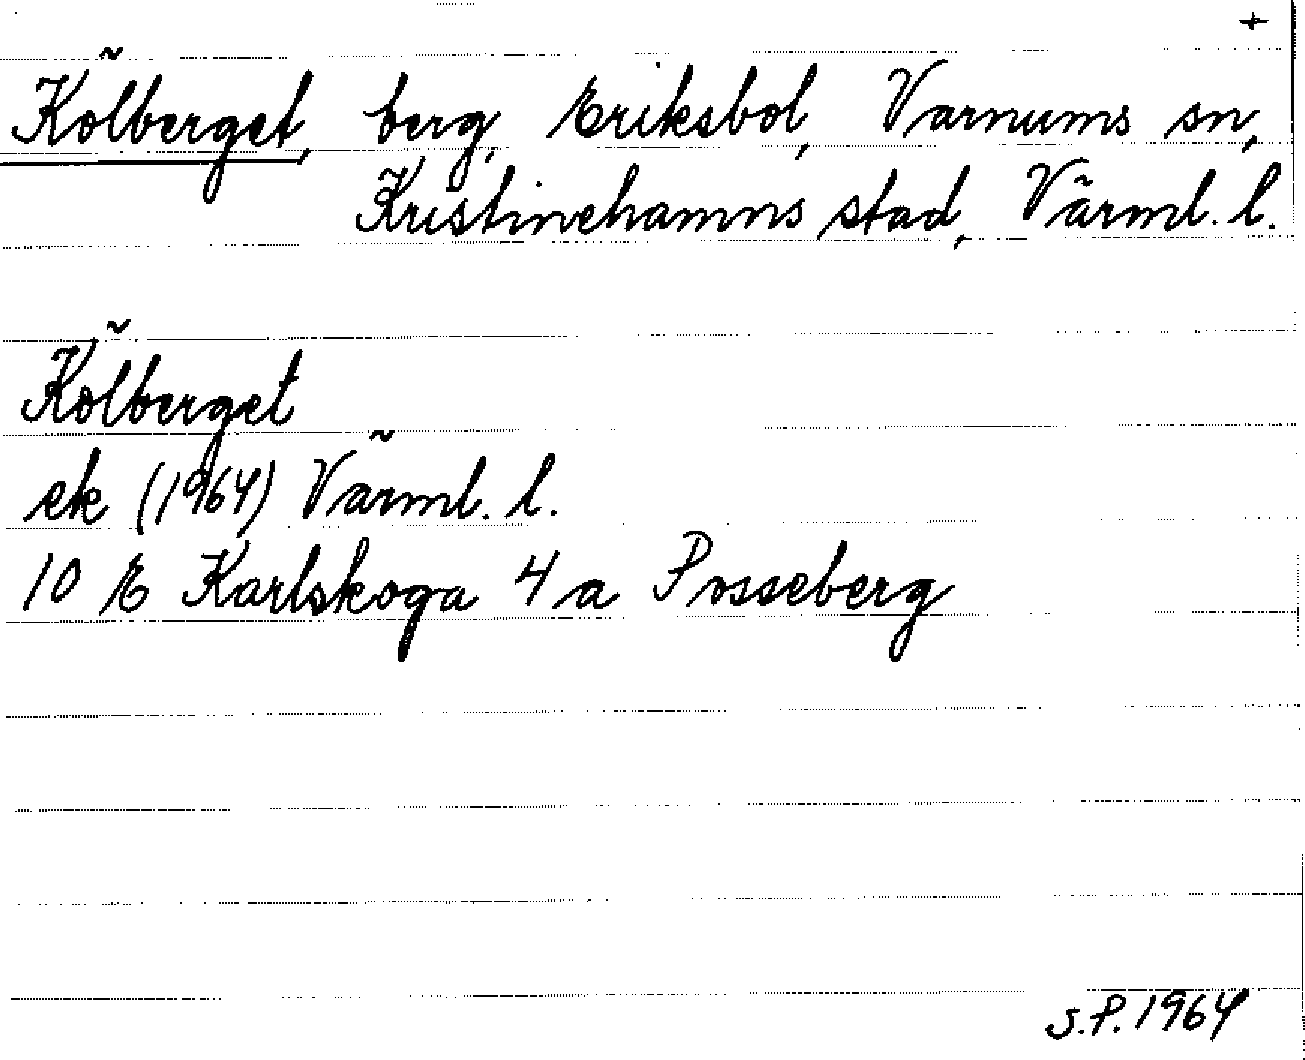 +
Kölberget, berg, Eriksbol, Varnums sn,
Kristinehamns stad, Värml. l.
Kölberget
ek (1964) Värml. l.
10 E Karlskoga 4 a Posseberg
S.P. 1964